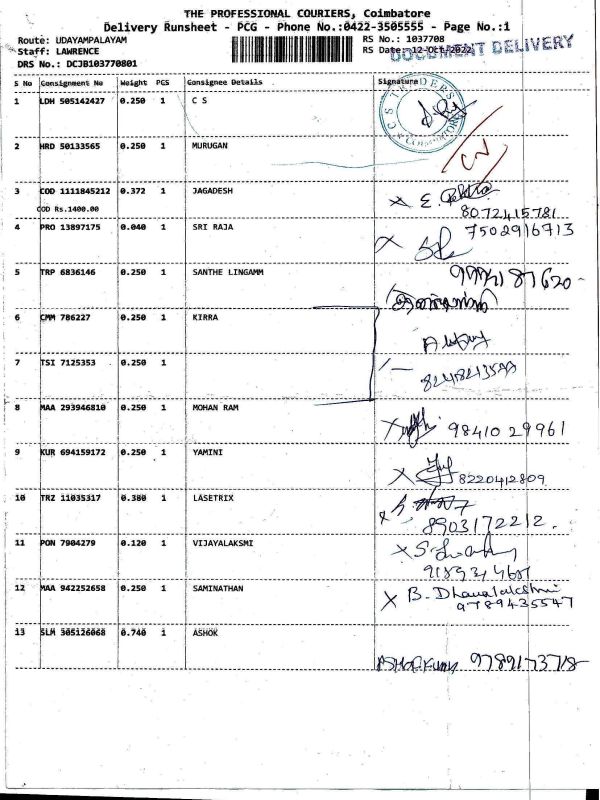 THE PROFESSIONAL COURIERS, Coimbatore
Delivery Runsheet - PCG - Phone No.:0422-3505555 - Page No.:1
Route: UDAYAMPALAYAM RS No.: 1037708
Staff: LAWRENCE RS Date: 12-Oct-2022
DOCUMENT DELIVERY
DRS No.: DCJB103770801
S No Consignment No Weight PCS Consignee Details Signature
1 LDH 505142427 0.250 1 C S
C S TRADERS COIMBATORE
2 HRD 50133565 0.250 1 MURUGAN
3 COD 1111845212 0.372 1 JAGADESH
COD Rs.1400.00 8072415781
4 PRO 13897175 0.040 1 SRI RAJA 7502916713
5 TRP 6836146 0.250 1 SANTHE LINGAMM
6 CMM 786227 0.250 1 KIRRA
7 TSI 7125353 0.250 1
8 MAA 293946810 0.250 1 MOHAN RAM 98410 29961
9 KUR 694159172 0.250 1 YAMINI 8220412809
10 TRZ 11035317 0.380 1 LASETRIX
8903172212.
11 PON 7904279 0.120 1 VIJAYALAKSMI
12 MAA 942252658 0.250 1 SAMINATHAN X B. Dhanalakshmi
9789435547
13 SLM 305126068 0.740 1 ASHOK